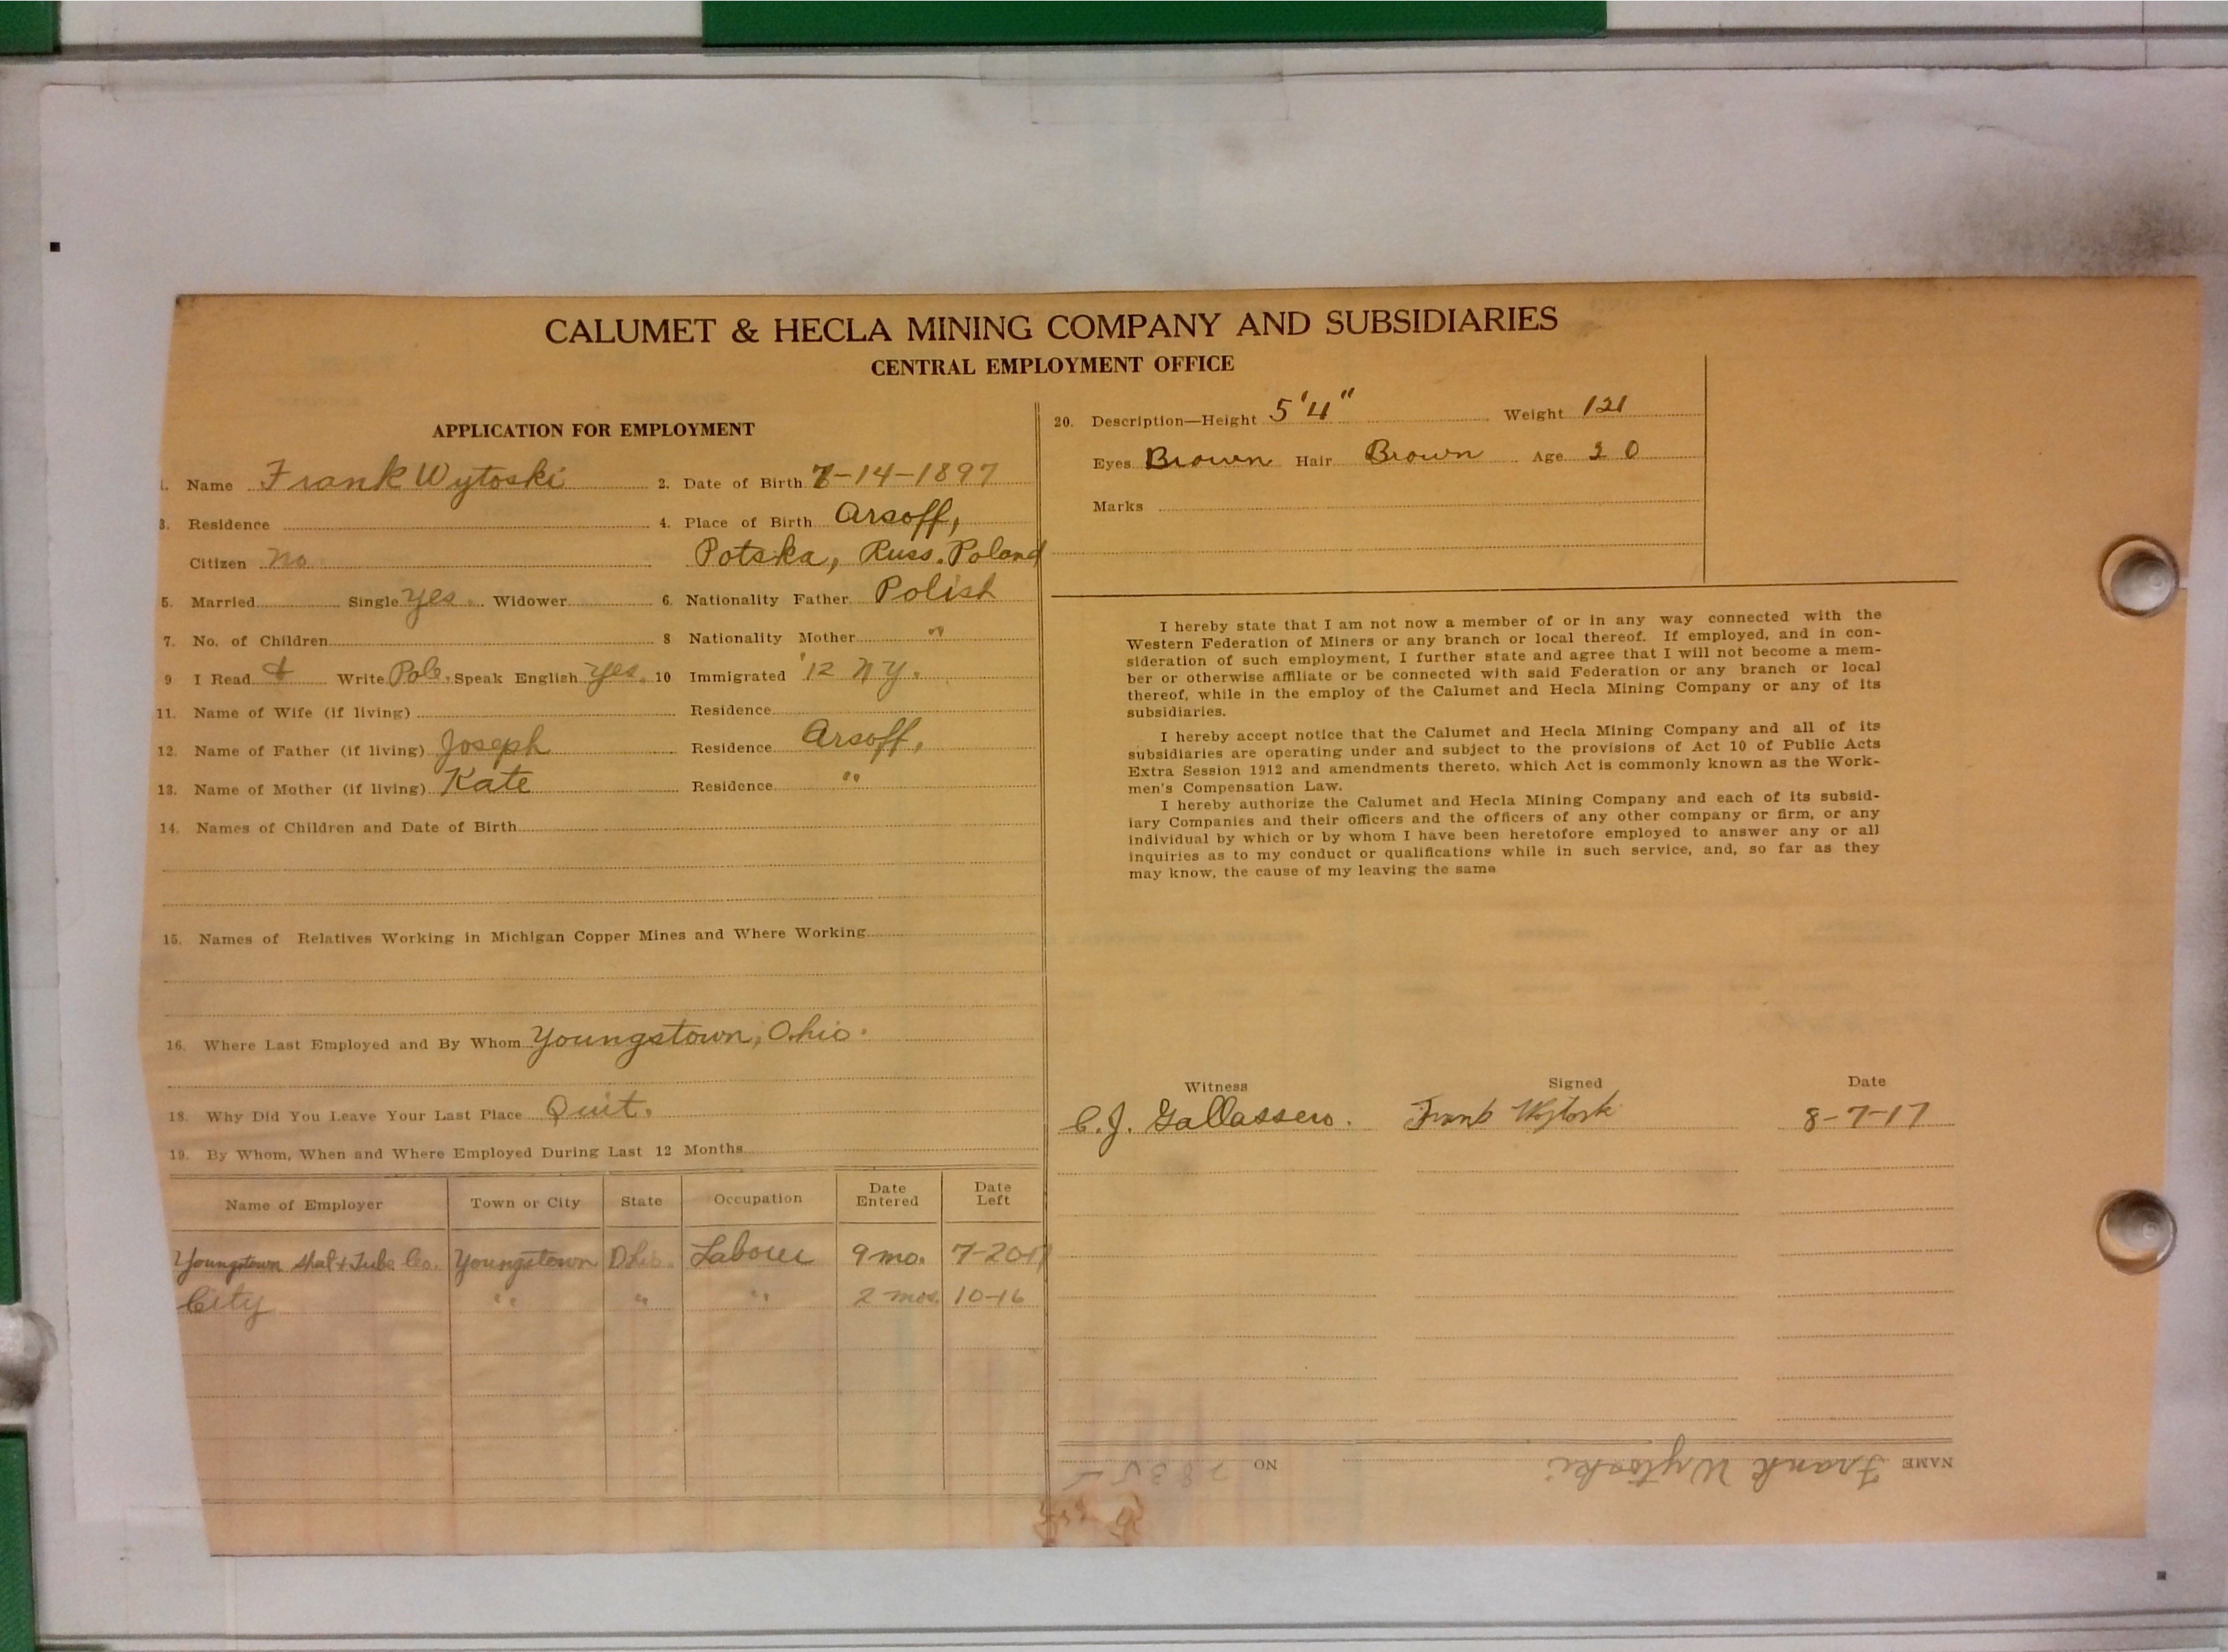 CALUMET & HECLA MINING COMPANY AND SUBSIDIARIES
CENTRAL EMPLOYMENT OFFICE
APPLICATION FOR EMPLOYMENT
1. Name Frank Wytoski 2. Date of Birth 7-14-1897
3. Residence 4. Place of Birth Arsoff,
Citizen No Potska, Russ. Poland
5. Married Single Yes Widower 6. Nationality Father Polish
7. No. of Children 8 Nationality Mother "
9 I Read & Write Pole. Speak English Yes. 10 Immigrated '12 N Y.
11. Name of Wife (if living) Residence
12. Name of Father (if living) Joseph Residence Arsoff,
13. Name of Mother (if living) Kate Residence "
14. Names of Children and Date of Birth
15. Names of Relatives Working in Michigan Copper Mines and Where Working
16. Where Last Employed and By Whom Youngstown, Ohio.
18. Why Did You Leave Your Last Place Quit.
19. By Whom, When and Where Employed During Last 12 Months
Name of Employer Town or City State Occupation Date Entered Date Left
Youngstown Sheet & Tube Co. Youngstown Ohio. Laborer 9 mo. 7-20-17
City " " " 2 mos. 10-16
20. Description—Height 5'4" Weight 121
Eyes Brown Hair Brown Age 20
Marks
I hereby state that I am not now a member of or in any way connected with the
Western Federation of Miners or any branch or local thereof. If employed, and in con-
sideration of such employment, I further state and agree that I will not become a mem-
ber or otherwise affiliate or be connected with said Federation or any branch or local
thereof, while in the employ of the Calumet and Hecla Mining Company or any of its
subsidiaries.
I hereby accept notice that the Calumet and Hecla Mining Company and all of its
subsidiaries are operating under and subject to the provisions of Act 10 of Public Acts
Extra Session 1912 and amendments thereto, which Act is commonly known as the Work-
men's Compensation Law.
I hereby authorize the Calumet and Hecla Mining Company and each of its subsid-
iary Companies and their officers and the officers of any other company or firm, or any
individual by which or by whom I have been heretofore employed to answer any or all
inquiries as to my conduct or qualifications while in such service, and, so far as they
may know, the cause of my leaving the same
Witness Signed Date
C. J. Gallassero. Frank Wytoski 8-7-17
NAME Frank Wytoski NO